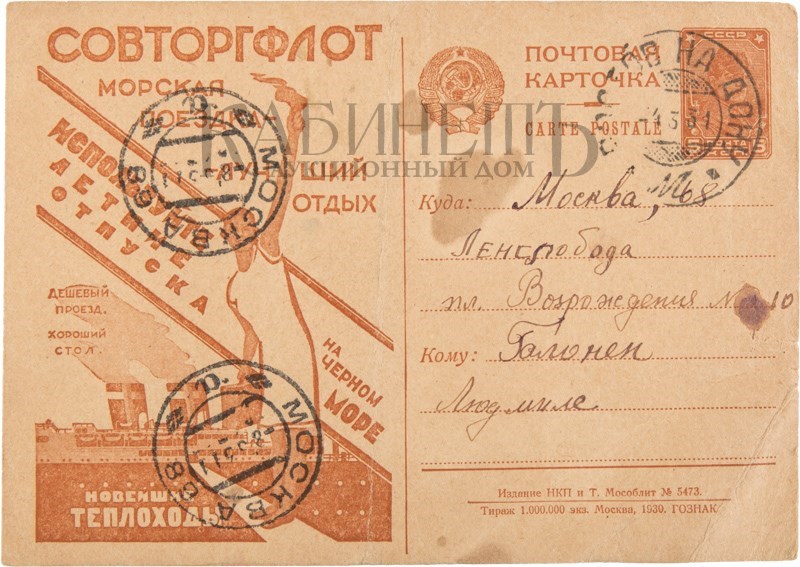 СОВТОРГФЛОТ
МОРСКАЯ
ПОЕЗДКА-
ЛУЧШИЙ
ОТДЫХ
ИСПОЛЬЗУЙ
ЛЕТНИЕ
ОТПУСКА
ДЕШЕВЫЙ
ПРОЕЗД.
ХОРОШИЙ
СТОЛ.
НА
ЧЕРНОМ
МОРЕ
НОВЕЙШИЕ
ТЕПЛОХОДЫ
МОСКВА 68
МОСКВА 68
КАБИНЕТЪ
АУКЦИОННЫЙ ДОМ
ПОЧТОВАЯ
КАРТОЧКА
CARTE POSTALE
СССР
РОСТОВ НА ДОНУ
Куда: Москва, 68
Ленслобода
пл. Возрождения № 10
Кому:
Людмиле
Издание НКП и Т. Мособлит № 5473.
Тираж 1.000.000 экз. Москва, 1930. ГОЗНАК